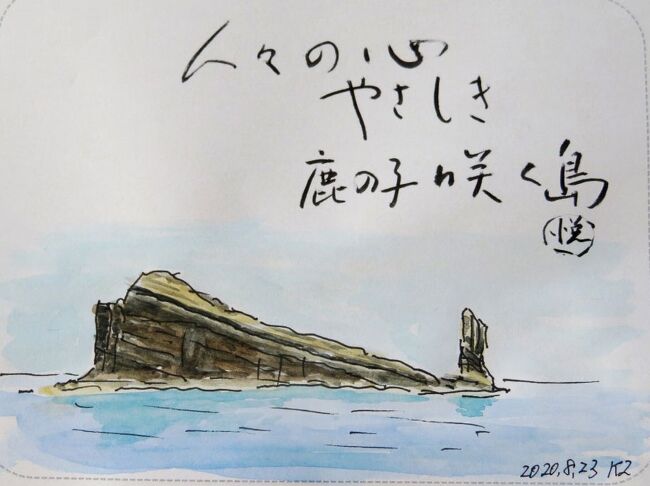 人々の心
やさしき
鹿の子咲く島
悦
2020.8.23 K2